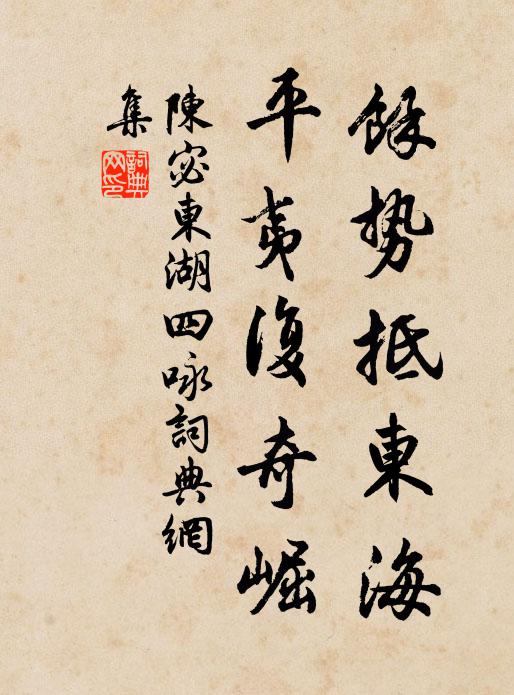 餘勢抵東海
平夷復奇崛
陳宓東湖四咏詞典網
集
詞典
网印